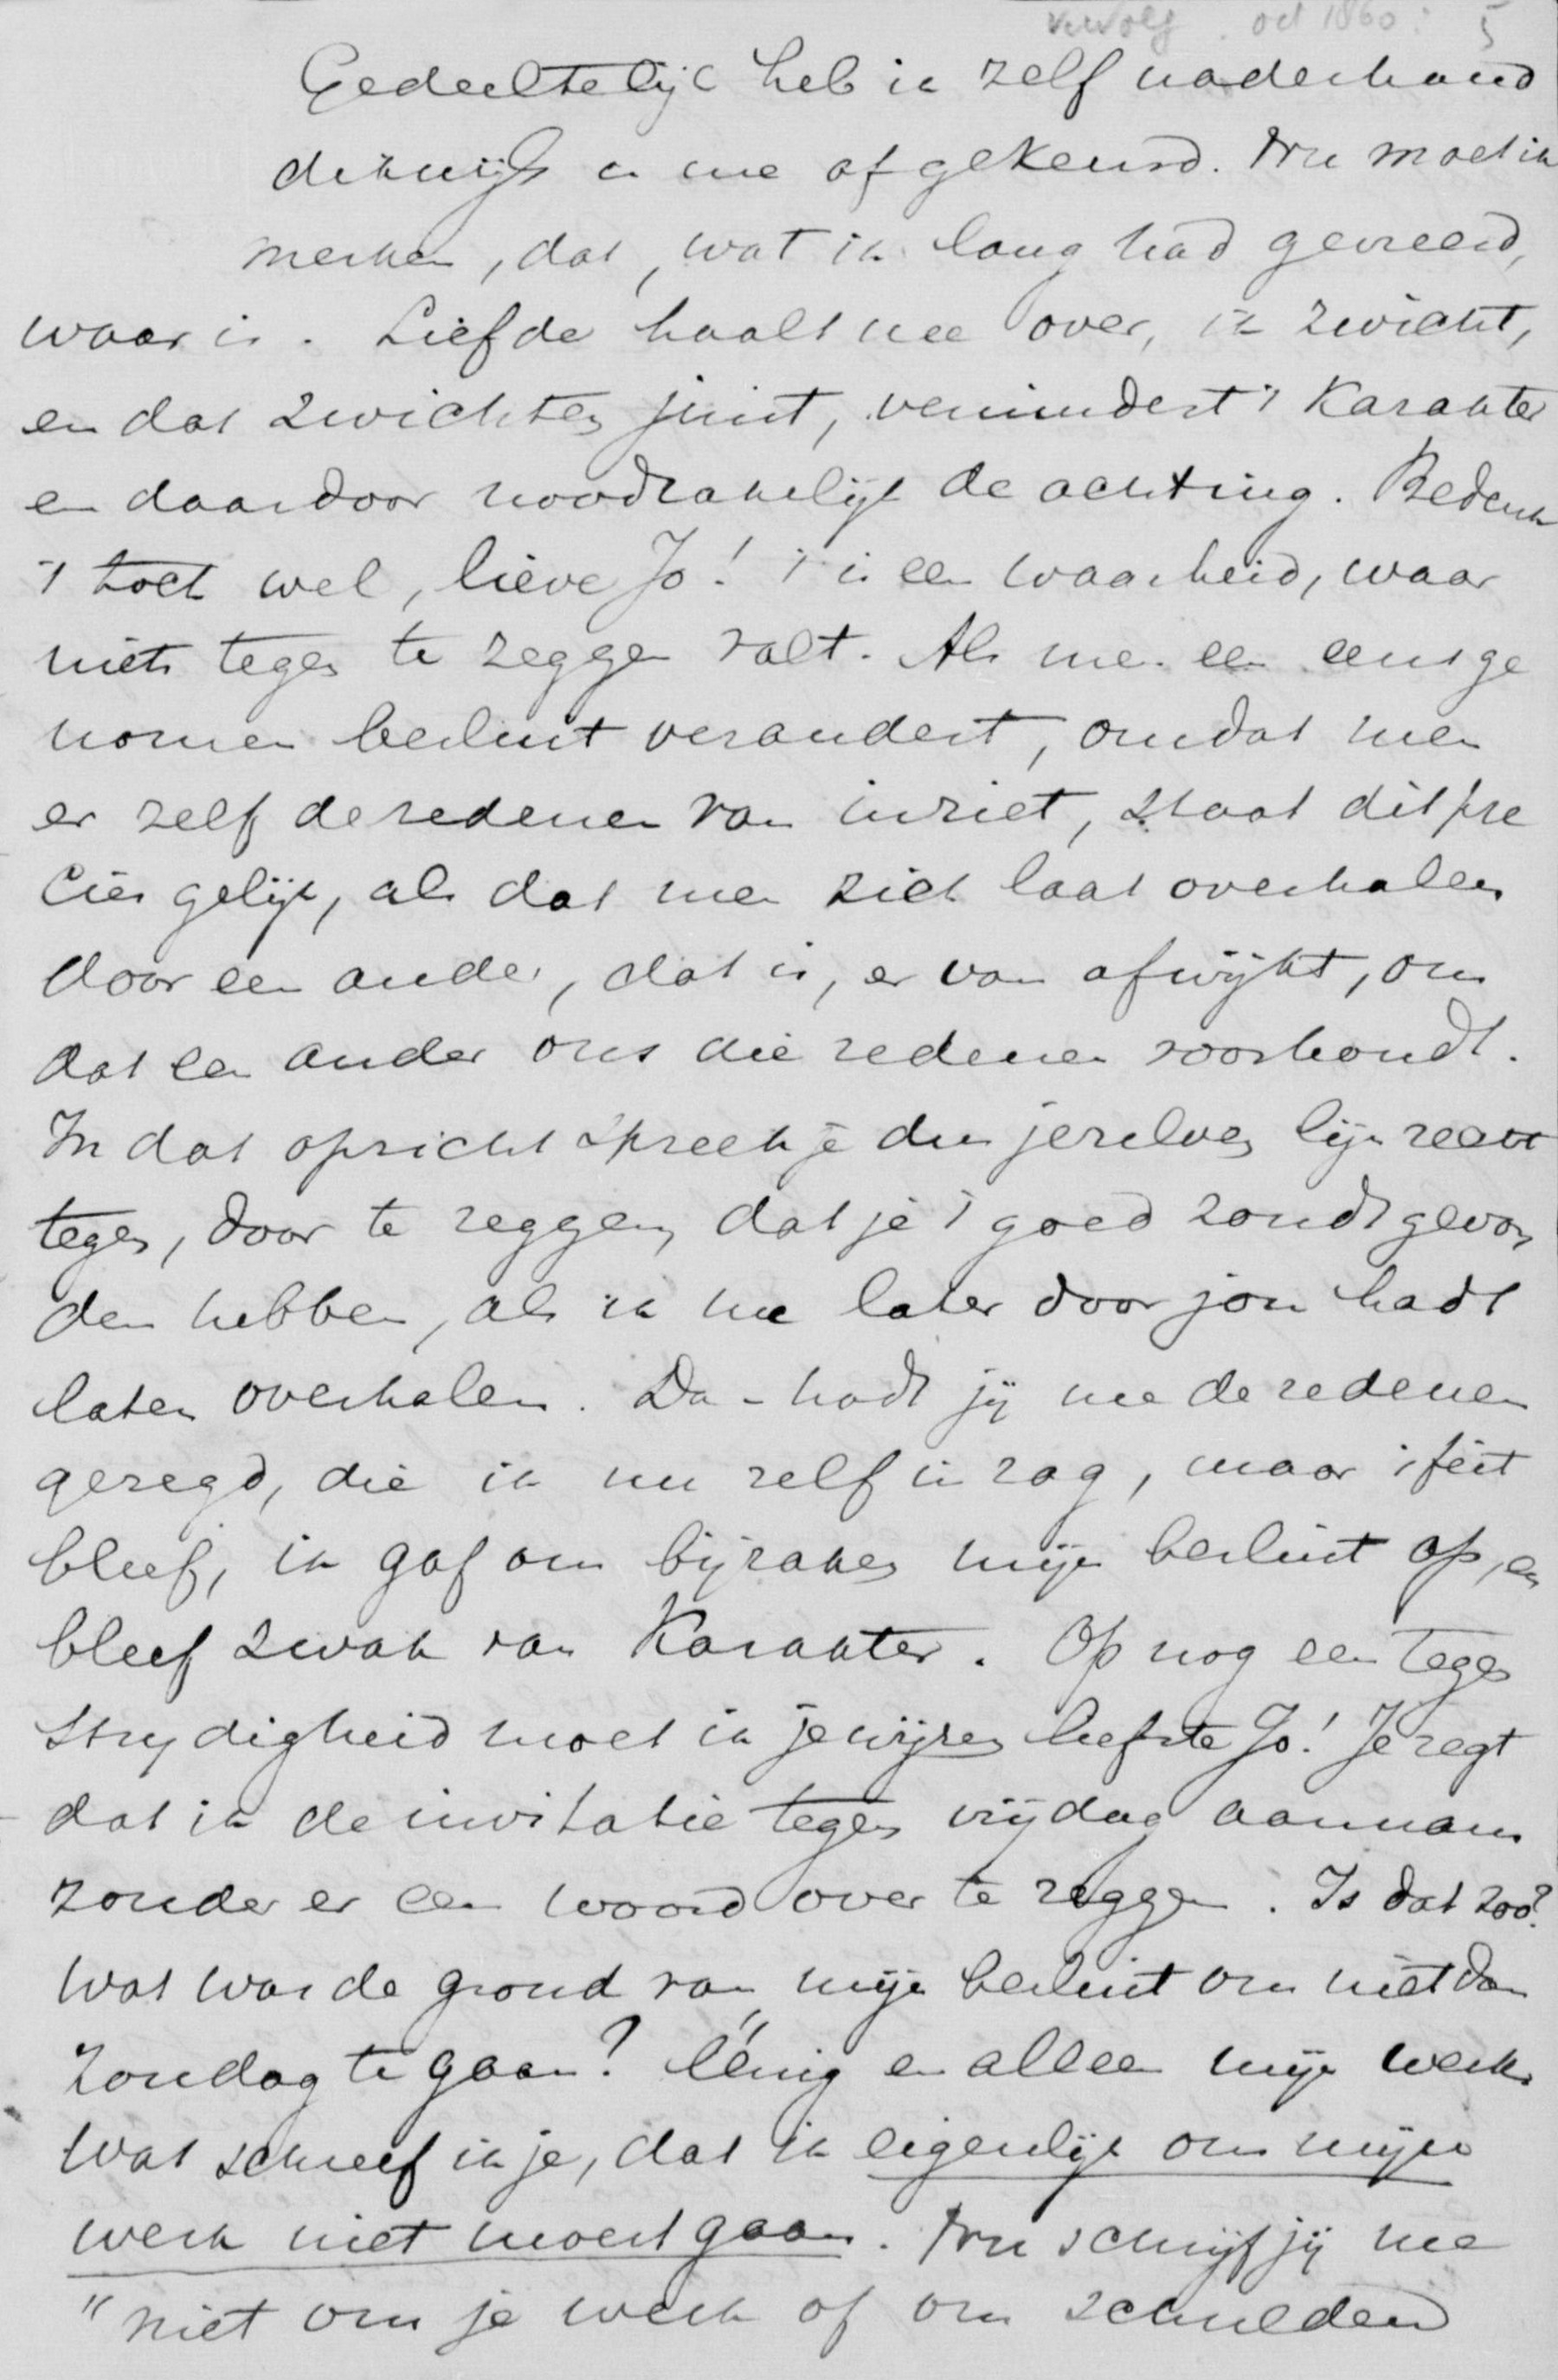 vervolg. oct 1860. 5
Gedeeltelijk heb ik zelf naderhand
dikwijls in me afgekeurd. Nu moet ik
merken, dat, wat ik lang had gevreesd,
waar is. Liefde haalt me over, ik zwicht,
en dat zwichten juist, vermindert 't karakter
en daardoor noodzakelijk de achting. Bedenk
't toch wel, lieve Jo! 't is een waarheid, waar
niets tegen te zeggen valt. Als men een eens ge
nomen besluit verandert, omdat men
er zelf de redenen van inziet, staat dit pre
cies gelijk, als dat men zich laat overhalen
door een ander, dat is, er van afwijkt, om
dat een ander ons die redenen voorhoudt.
In dat opzicht spreek je dus jezelven lijnrecht
tegen, door te zeggen, dat je 't goed zoudt gevon
den hebben, als ik me later door jou hadt
laten overhalen. Dan hadt jij me de redenen
gezegd, die ik nu zelf in zag, maar 't feit
bleef, ik gaf om bijzaken mijn besluit op, en
bleef zwak van karakter. Op nog een tegen
strydigheid moet ik je wijzen liefste Jo! Je zegt
dat ik de invitatie tegen vrijdag aannam
zonder er een woord over te zeggen. Is dat zoo?
Wat was de grond van mijn besluit om niet dan
Zondag te gaan? Eénig en alleen mijn werk.
Wat schreef ik je, dat ik eigenlijk om mijn
werk niet moest gaan. Nu schrijf jij me
"niet om je werk of om schulden